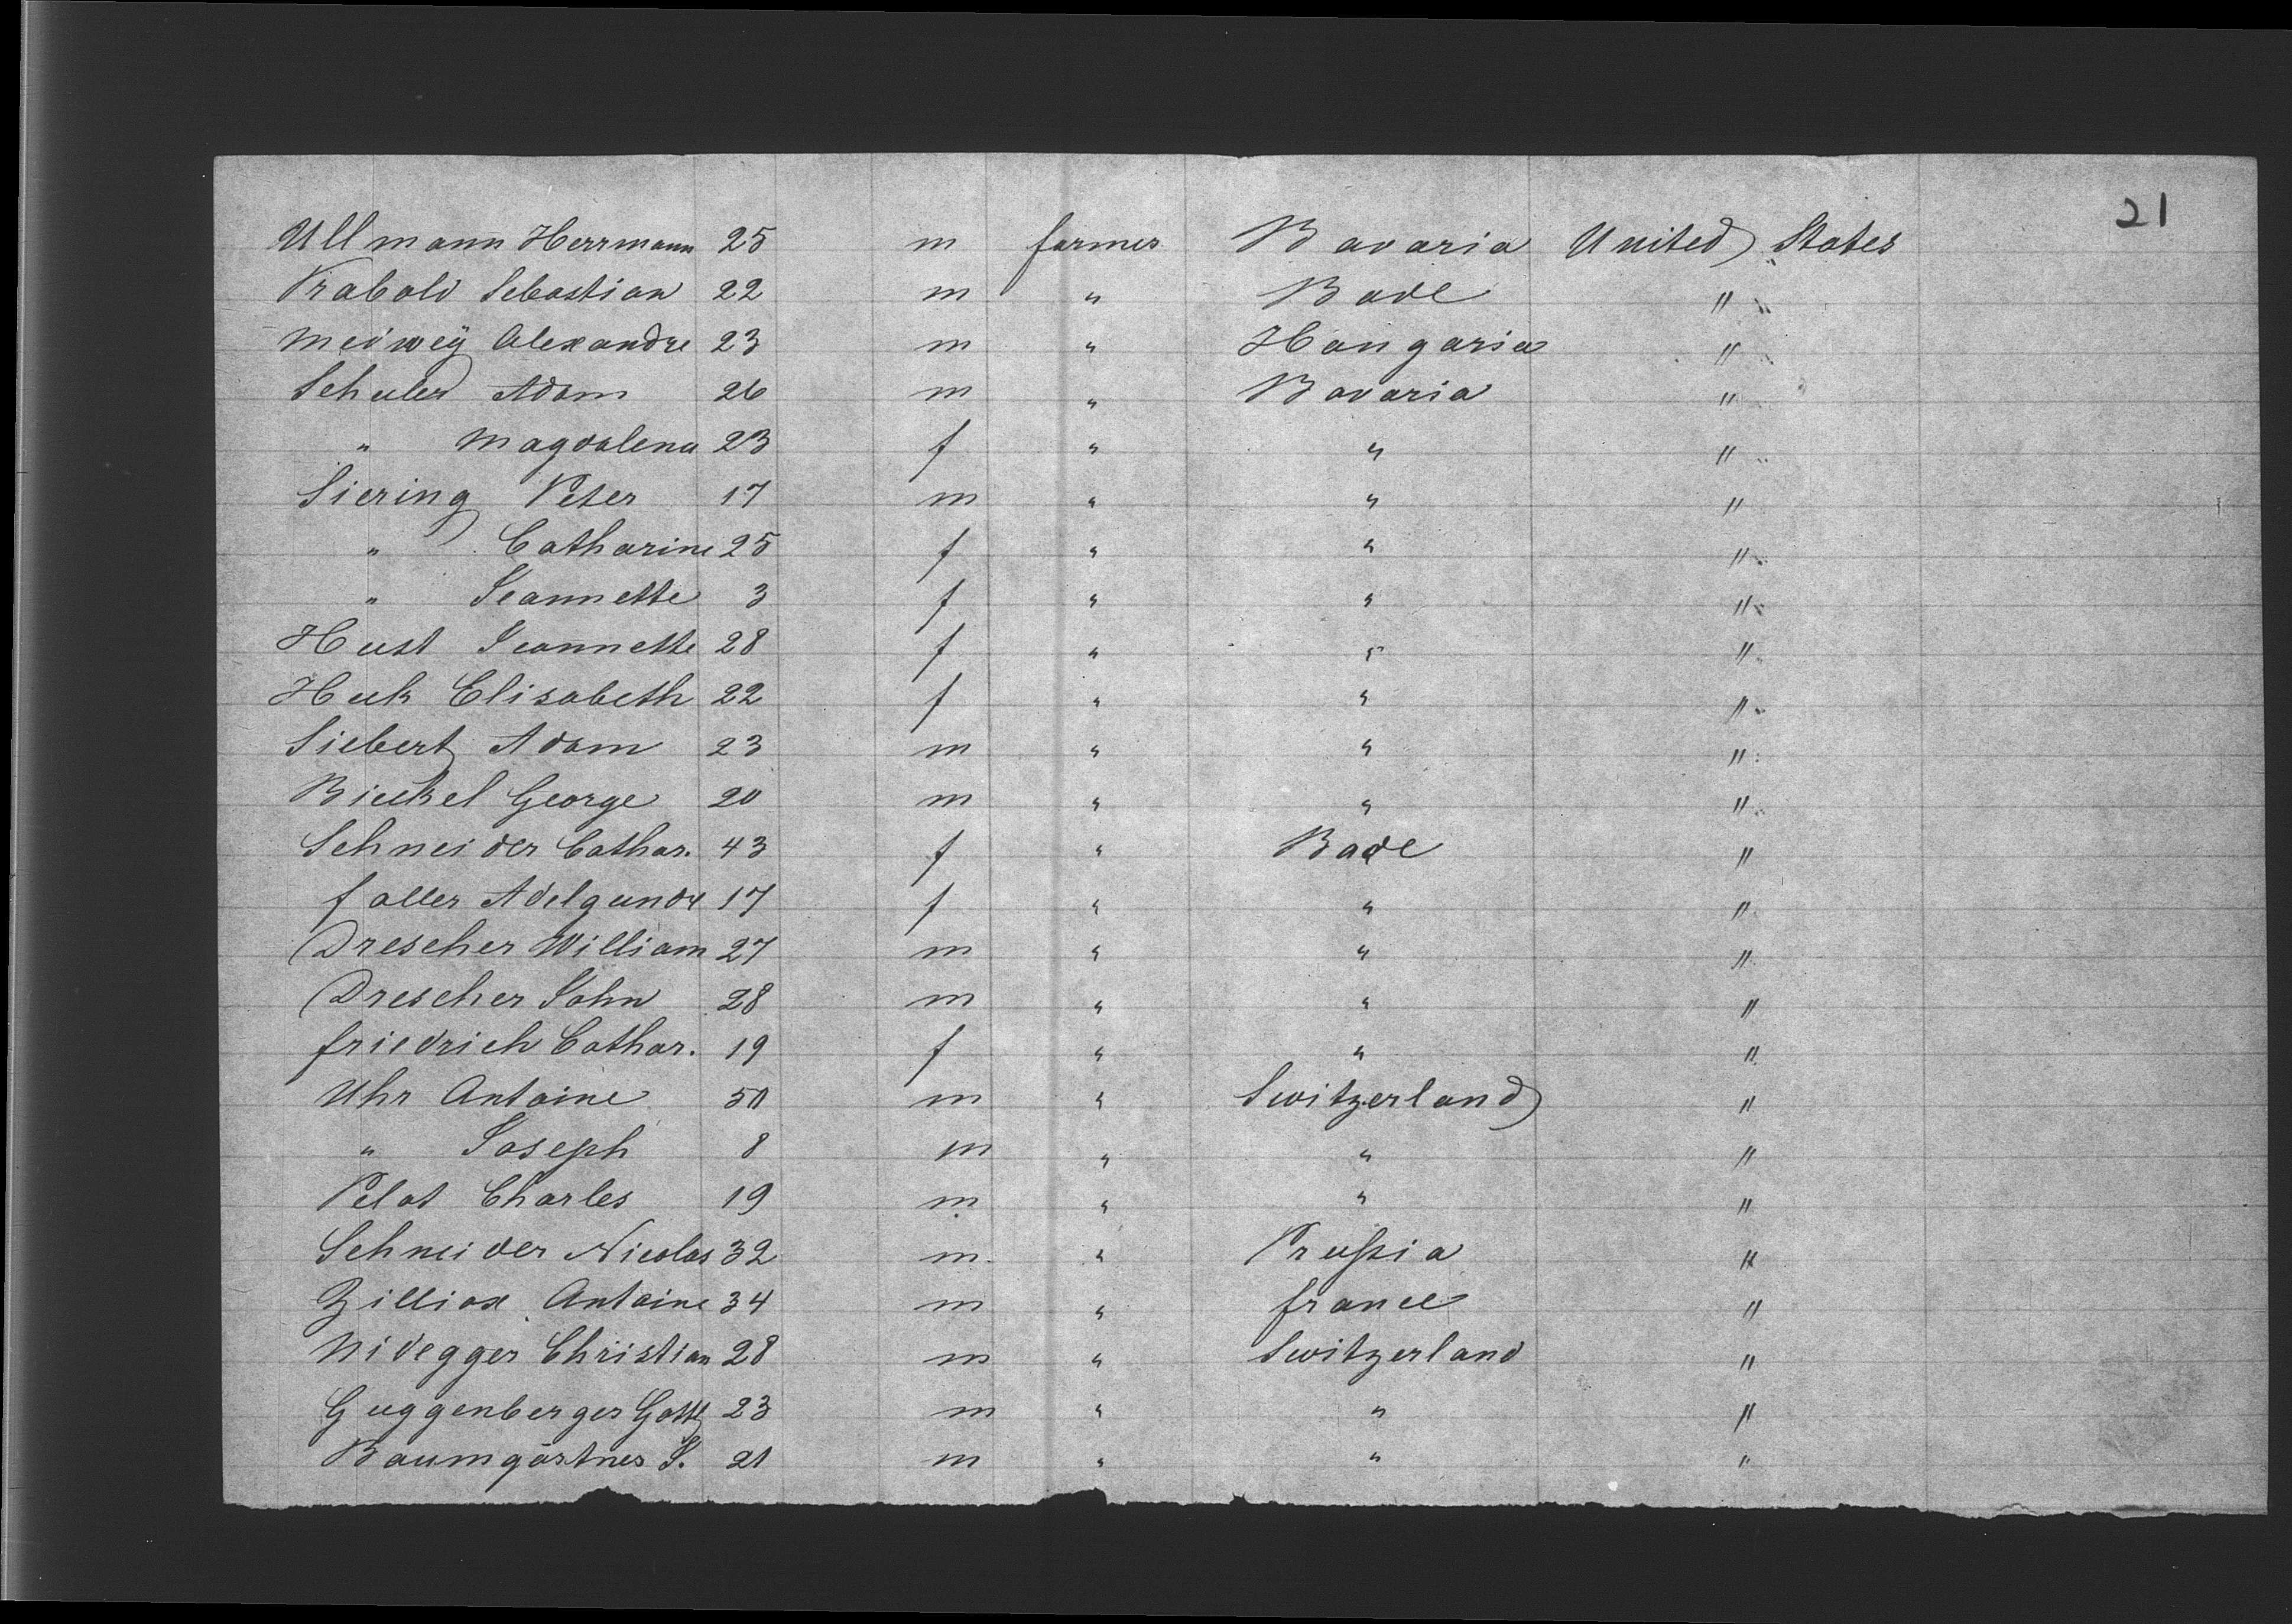 21
Ullmann Herrmann 25 m farmer Bavaria United States
Prabold Sebastian 22 m " Bade "
Medweÿ Alexandre 23 m " Hongaria "
Schuler Adam 26 m " Bavaria "
" Magdalena 23 f " " "
Siering Peter 17 m " " "
" Catharine 25 f " " "
" Jeannette 3 f " " "
Hust Jeannette 28 f " " "
Huk Elisabeth 22 f " " "
Siebert Adam 23 m " " "
Bickel George 20 m " " "
Schneider Cathar. 43 f " Bade "
faller Adelgunde 17 f " " "
Drescher William 27 m " " "
Drescher John 28 m " " "
friedrich Cathar. 19 f " " "
Uhr Antoine 50 m " Switzerland "
" Joseph 8 m " " "
Pelot Charles 19 m " " "
Schneider Nicolas 32 m " Prußia "
Zilliox Antoine 34 m " france "
Nidegger Christian 28 m " Switzerland "
Guggenberger Gottl 23 m " " "
Baumgärtner J. 21 m " " "